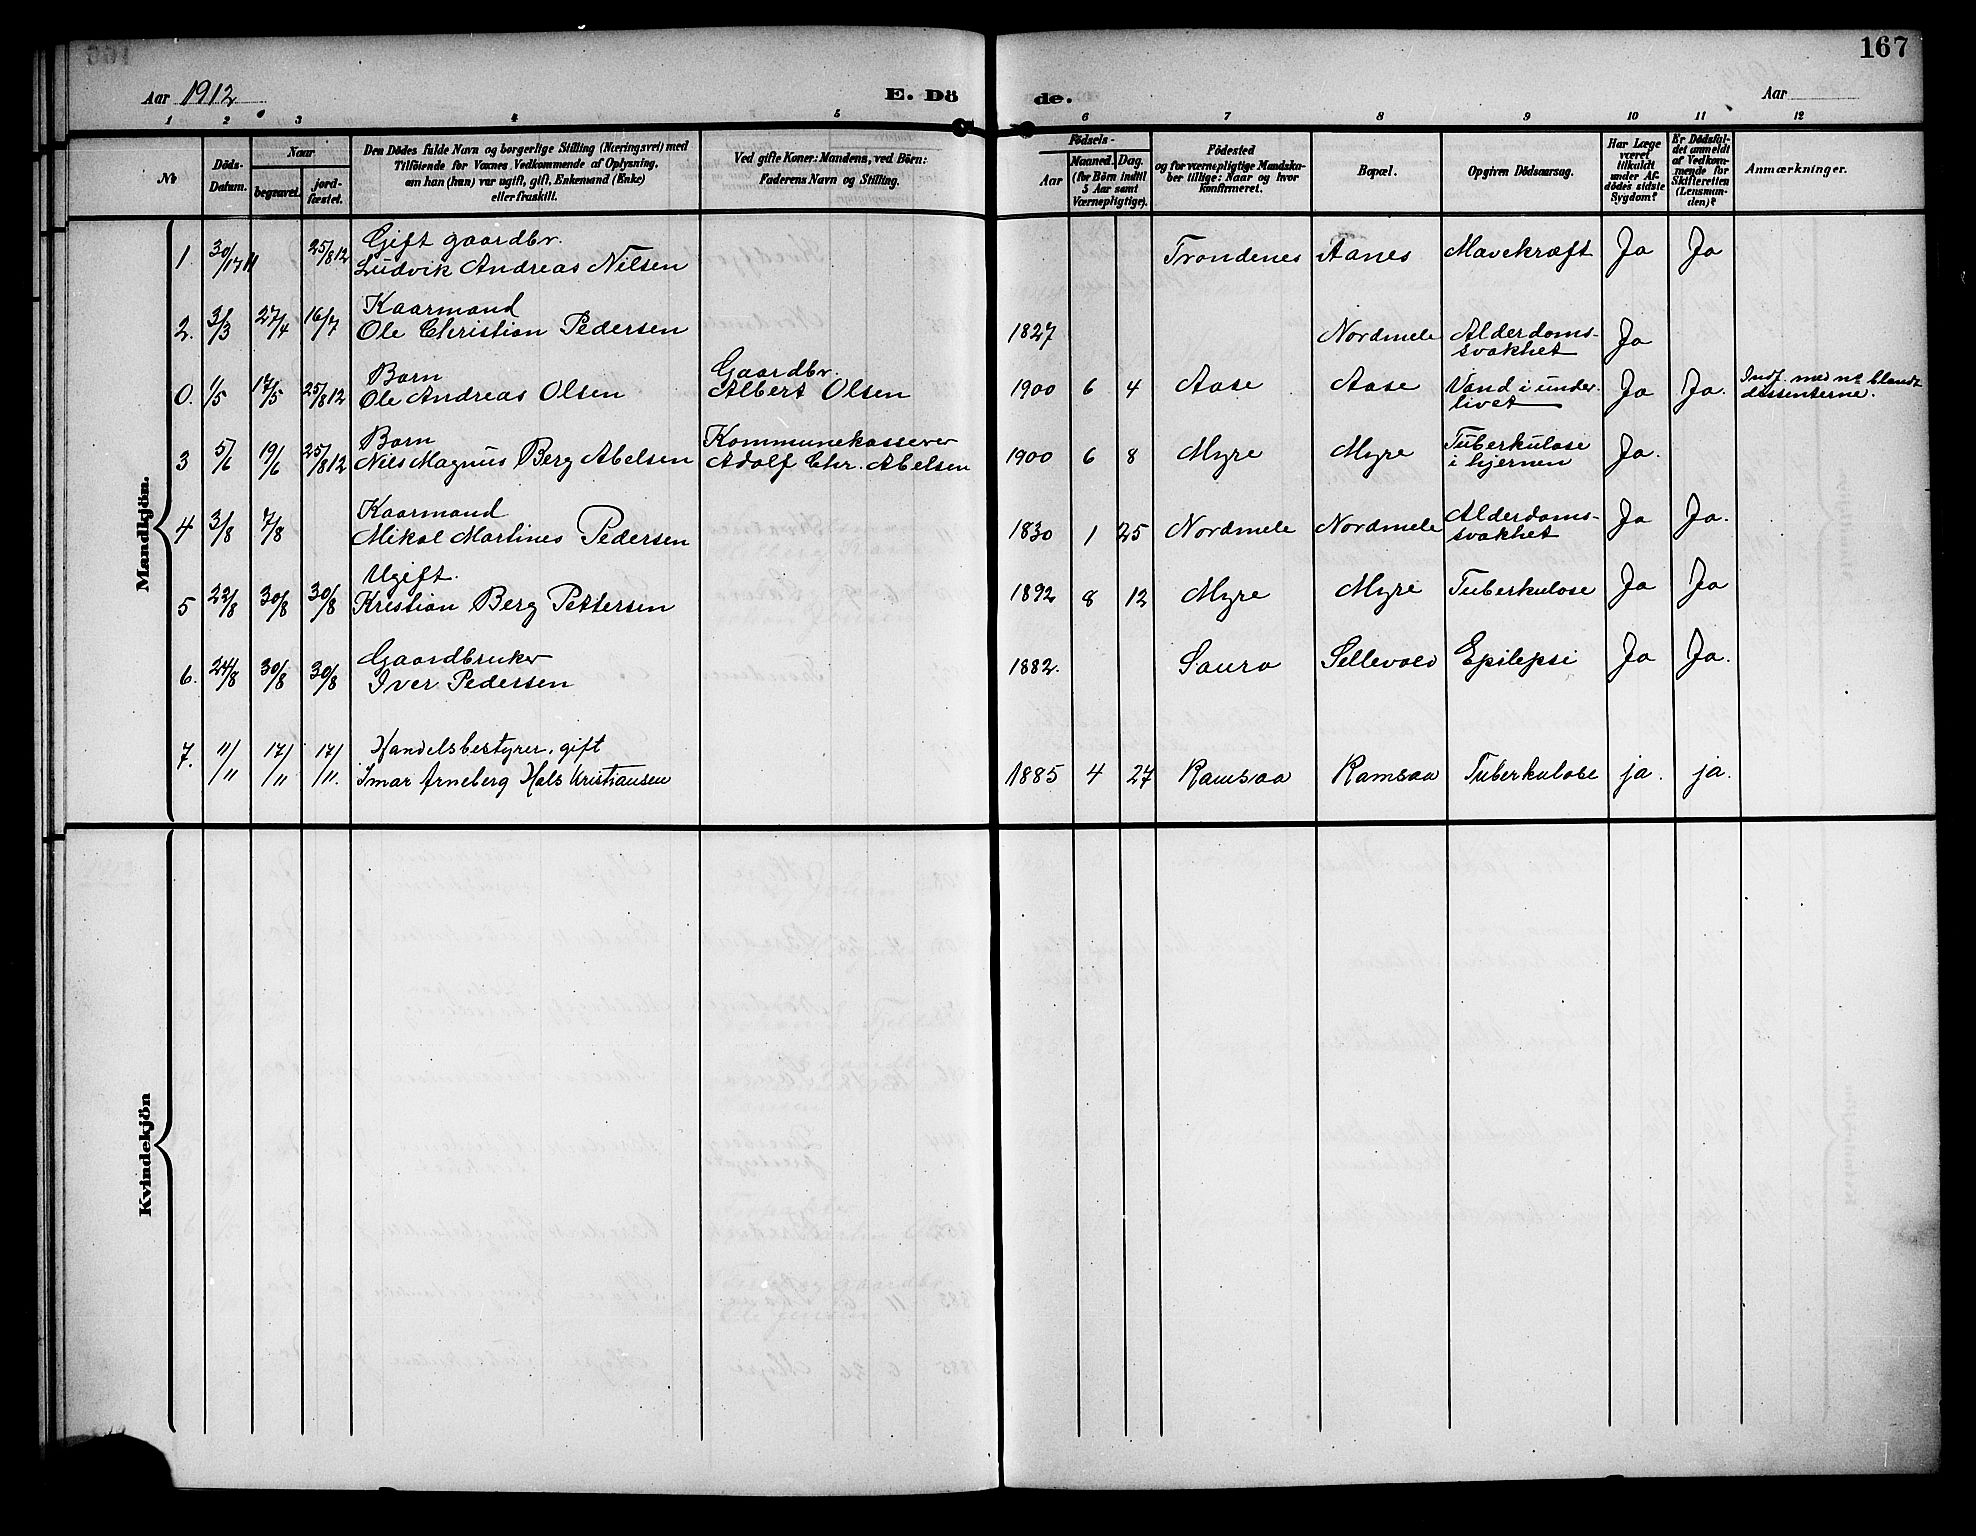 167
Aar 1912
E. Dö de.
Aar
1 2 3 4 5 6 7 8 9 10 11 12
No
Döds-Datum.
Naar
begravet.
jord-fæstet.
Den Dödes fulde Navn og borgerlige Stilling (Næringsvei) med
Tilföiende for Voxnes Vedkommende af Oplysning,
om han (hun) var ugift, gift, Enkemand (Enke)
eller fraskilt.
Ved gifte Koner: Mandens, ved Börn:
Faderens Navn og Stilling.
Födsels-
Aar
Maaned. Dag.
(for Börn indtil
5 Aar samt
Værnepligtige).
Födested
og for værnepligtige Mandska-
ber tillige: Naar og hvor
konfirmeret.
Bopæl.
Opgiven Dödsaarsag.
Har Læge
været
tilkaldt
under Af-
dödes sidste
Sygdom?
Er Dödsfal-
det anmeldt
af Vedkom-
mende for
Skifteretten
(Lensman-
den)?
Anmærkninger.
Mandkjön.
1 25/8 12 Gift gaardbr. Trondenes Aanes Mavekræft Ja Ja
Ludvik Andreas Nilsen
2. 3/3 27/4 16/7 Kaarmand
Ole Christian Pedersen 1827 Nordmele Alderdoms-
svakhet Ja
0. 1/5 17/5 25/8 12 Barn Gaardbr.
Ole Andreas Olsen Albert Olsen 1900 6 4 Aase Aase Vand i under-
livet Ja Ja. Indf. med no blandt
dissenterne.
3 5/6 19/6 25/8 12 Barn Kommunekasserer
Nils Magnus Berg Abelsen Adolf Chr. Abelsen 1900 6 8 Myre Myre Tuberkulose
i hjernen Ja.
4 3/8 7/8 Kaarmand
Mikal Martines Pedersen 1830 1 25 Nordmele Nordmele Alderdoms-
svakhet Ja Ja.
5 22/8 30/8 30/8 Ugift.
Kristian Berg Pettersen 1892 8 12 Myre Myre Tuberkulose Ja Ja
6. 24/8 30/8 30/8 Gaardbruker
Iver Pedersen 1882. Saura Sellevold Epilepsi Ja Ja.
7. 11/11 17/11 17/11. Handelsbestyrer, gift
Imar Arneberg Hals Kristiansen 1885 4 27 Ramsaa Ramsaa Tuberkulose ja. ja.
Kvindekjön